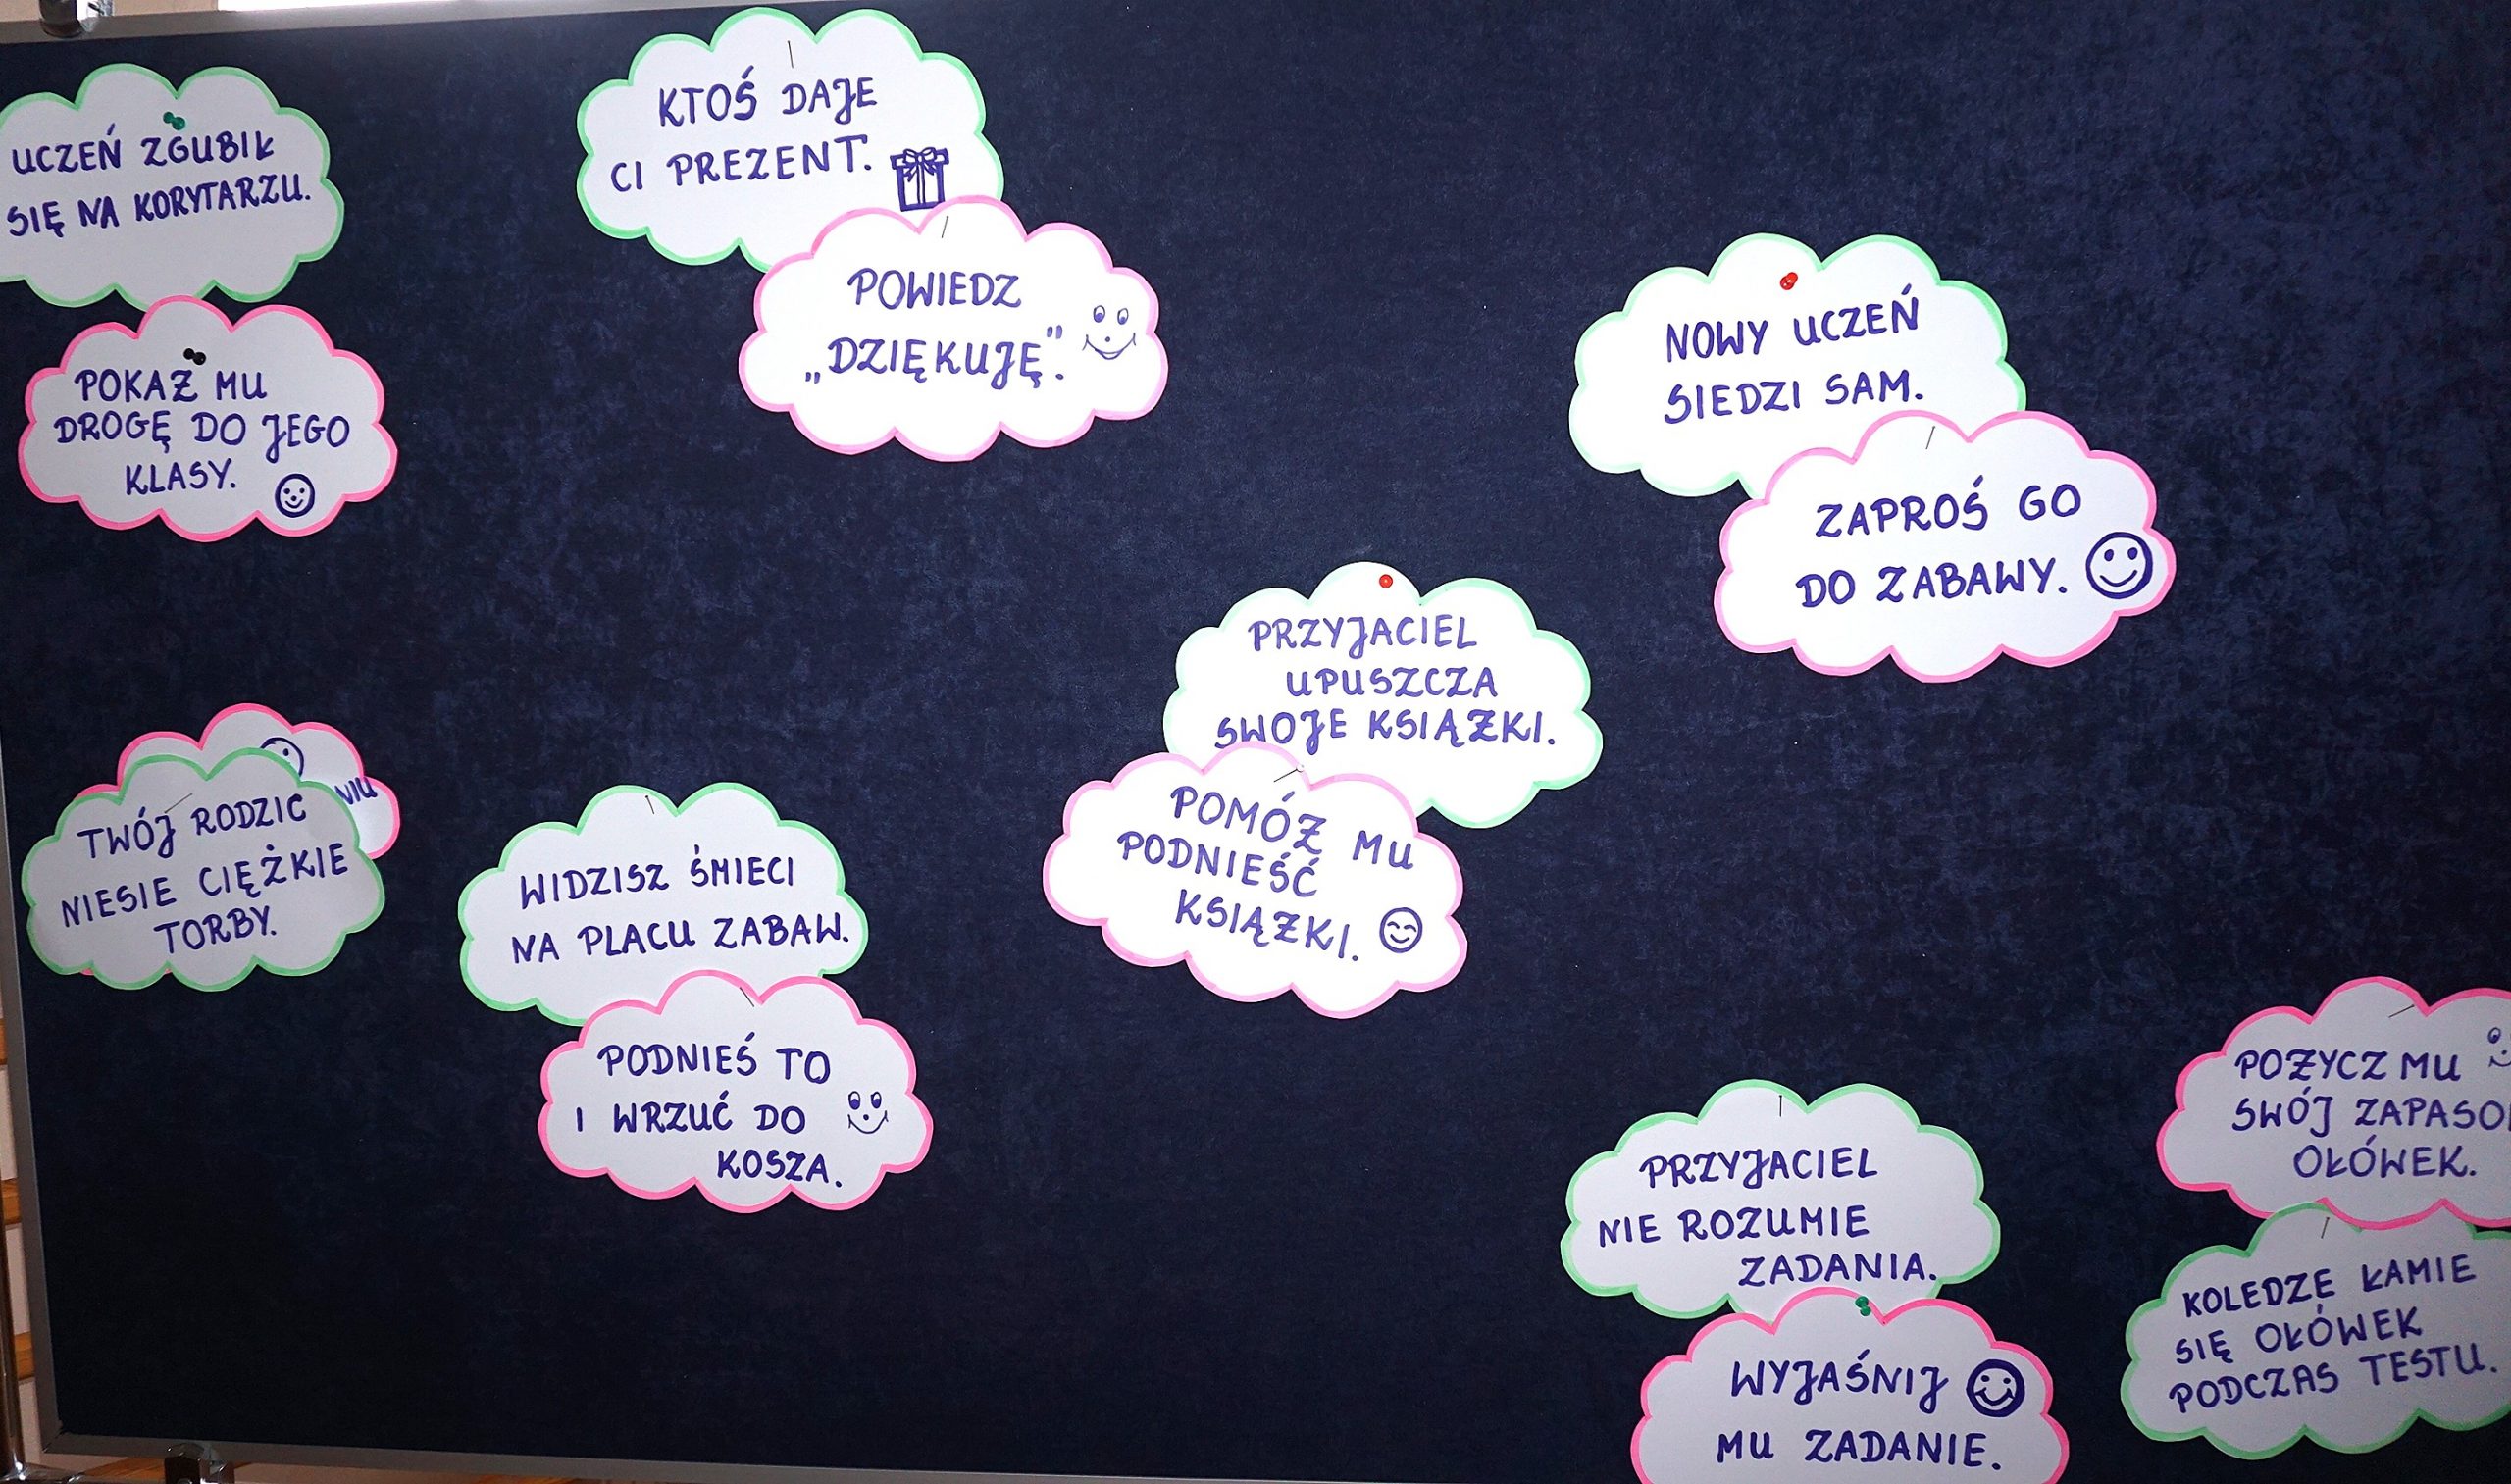 UCZEŃ ZGUBIŁ
SIĘ NA KORYTARZU.
POKAŻ MU
DROGĘ DO JEGO
KLASY.
KTOŚ DAJE
CI PREZENT.
POWIEDZ
„DZIĘKUJĘ”.
NOWY UCZEŃ
SIEDZI SAM.
ZAPROŚ GO
DO ZABAWY.
PRZYJACIEL
UPUSZCZA
SWOJE KSIĄŻKI.
POMÓŻ MU
PODNIEŚĆ
KSIĄŻKI.
TWÓJ RODZIC
NIESIE CIĘŻKIE
TORBY.
WIDZISZ ŚMIECI
NA PLACU ZABAW.
PODNIEŚ TO
I WRZUĆ DO
KOSZA.
PRZYJACIEL
NIE ROZUMIE
ZADANIA.
WYJAŚNIJ
MU ZADANIE.
POŻYCZ MU
SWÓJ
OŁÓWEK.
KOLEDZE ŁAMIE
SIĘ OŁÓWEK
PODCZAS TESTU.